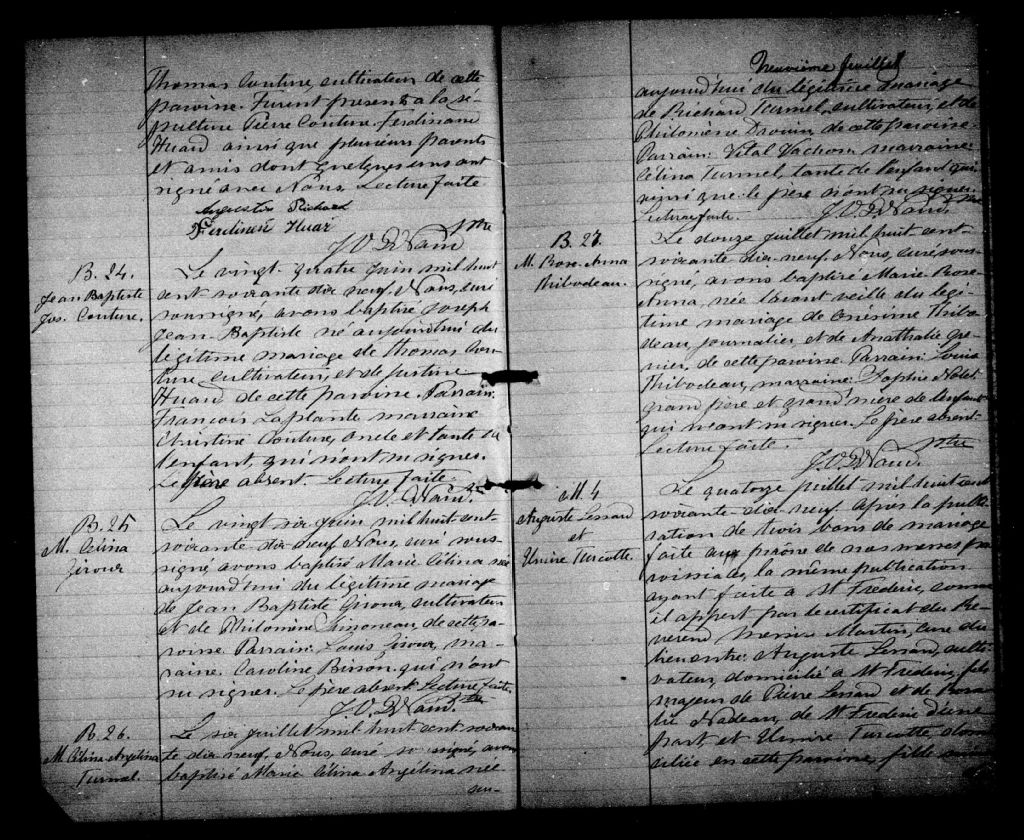 Thomas Couture, cultivateur de cette
paroisse. Furent presents a la sé-
pulture Pierre Couture, Ferdinand
Huard ainsi que plusieurs parents
et amis dont quelques uns ont
signé avec Nous. Lecture faite
Augustin Richard
Ferdinand Huar
Ptre
B. 24.
Jean Baptiste
Jos. Couture.
Le vingt-quatre Juin mil huit
cent soixante dix neuf, Nous, curé
soussigné, avons baptisé Joseph
Jean-Baptiste né aujourd'hui du
légitime mariage de Thomas Cou-
ture, cultivateur, et de Justine
Huard de cette paroisse. Parrain:
François Laplante marraine
Christine Couture, oncle et tante de
l'enfant, qui n'ont su signer.
Le père absent. Lecture faite.
B. 25
M. Célina
Giroux
Le vingt six Juin mil huit-cent-
soixante-dix-neuf Nous, curé sous-
signé avons baptisé Marie Célina née
aujourd'hui du légitime mariage
de Jean Baptiste Giroux, cultivateur
et de Philomène Simoneau, de cette pa-
roisse. Parrain: Louis Giroux, ma-
rraine: Caroline Bisson qui n'ont
su signer. Le père absent Lecture faite.
B. 26.
M. Célina Angélina
Turmel.
Le six juillet mil huit cent soixan-
te dix-neuf, Nous, curé soussigné, avons
baptisé Marie Célina Angélina née
Neuvième feuillet
aujourd'hui du légitime mariage
de Richard Turmel, cultivateur, et de
Philomène Drouin, de cette paroisse.
Parrain: Vital Vachon, marraine:
Célina Turmel, tante de l'enfant qui
ainsi que le père n'ont su signer.
Lecture faite.
Ptre
B. 27.
M. Rose-Anna
Thibodeau.
Le douze juillet mil huit cent-
soixante dix-neuf, Nous, curé sous-
signé, avons baptisé Marie Rose-
Anna, née l'avant veille du légi-
time mariage de Onésime Thibo-
deau, journalier, et de Anathalie Gre-
nier, de cette paroisse. Parrain: Louis
Thibodeau, marraine: Sophie Nolet,
grand père et grand'mère de l'enfant
qui n'ont su signer. Le père absent-
Lecture faite.
Ptre
M. 4
Auguste Lessard
et
Umire Turcotte.
Le quatorze juillet mil huit cent
soixante-dix-neuf Après la publi-
cation de trois bans de mariage
faite au prône de nos messes pa-
roissiales, la même publication
ayant faite à St Frederic, comme
il appert par le certificat du Ré-
vérend Messire Martin, curé du
lieu entre: Auguste Lessard, culti-
vateur, domicilié à St Frederic, fils
majeur de Pierre Lessard et de Rosa-
lie Nadeau, de St Frederic d'une
part, et Umire Turcotte, domi-
ciliée en cette paroisse, fille